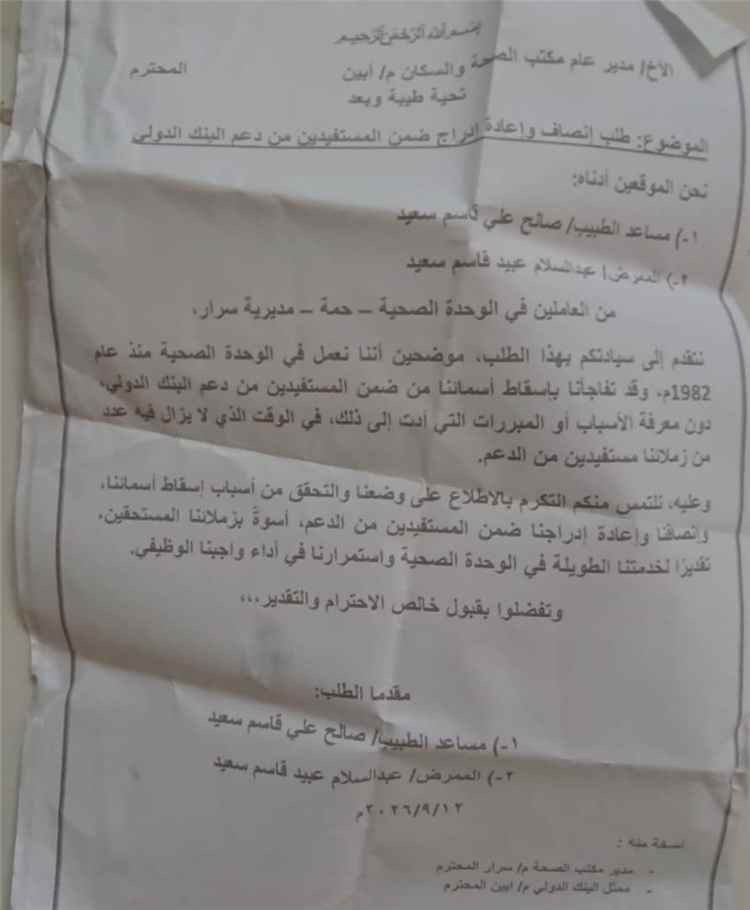 بسم الله الرحمن الرحيم
الأخ/ مدير عام مكتب الصحة والسكان م/ أبين المحترم
تحية طيبة وبعد
الموضوع: طلب إنصاف وإعادة إدراج ضمن المستفيدين من دعم البنك الدولي
نحن الموقعين أدناه:
١-) مساعد الطبيب/ صالح علي قاسم سعيد
٢-) الممرض/ عبدالسلام عبيد قاسم سعيد
من العاملين في الوحدة الصحية – حمة – مديرية سرار،
نتقدم إلى سيادتكم بهذا الطلب، موضحين أننا نعمل في الوحدة الصحية منذ عام
1982م، وقد تفاجأنا بإسقاط أسمائنا من ضمن المستفيدين من دعم البنك الدولي،
دون معرفة الأسباب أو المبررات التي أدت إلى ذلك، في الوقت الذي لا يزال فيه عدد
من زملائنا مستفيدين من الدعم.
وعليه، نلتمس منكم التكرم بالاطلاع على وضعنا والتحقق من أسباب إسقاط أسمائنا،
وإنصافنا وإعادة إدراجنا ضمن المستفيدين من الدعم، أسوةً بزملائنا المستحقين،
تقديرًا لخدمتنا الطويلة في الوحدة الصحية واستمرارنا في أداء واجبنا الوظيفي.
وتفضلوا بقبول خالص الاحترام والتقدير،،،
مقدما الطلب:
١-) مساعد الطبيب/ صالح علي قاسم سعيد
٢-) الممرض/ عبدالسلام عبيد قاسم سعيد
٢٠٢٦/٩/١٢م
نسخة منه :
- مدير مكتب الصحة م/ سرار المحترم
- ممثل البنك الدولي م/ أبين المحترم